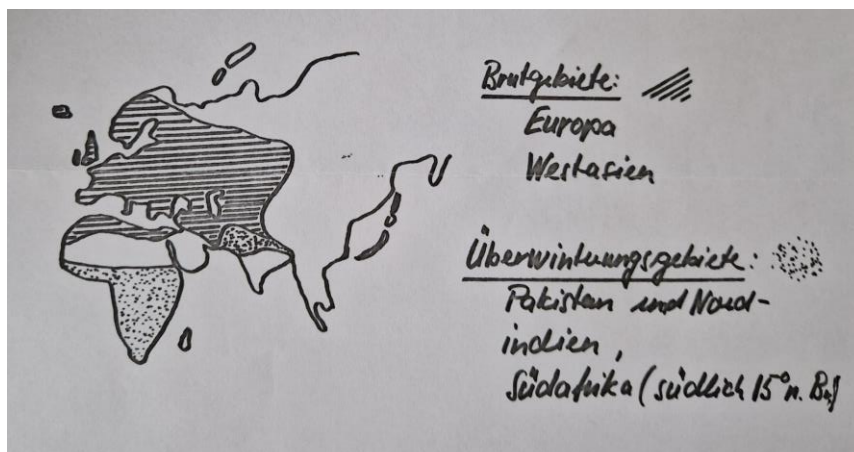 Brutgebiete:
Europa
Westasien
Überwinterungsgebiete:
Pakistan und Nord-
indien,
Südafrika (südlich 15° n. Br.)